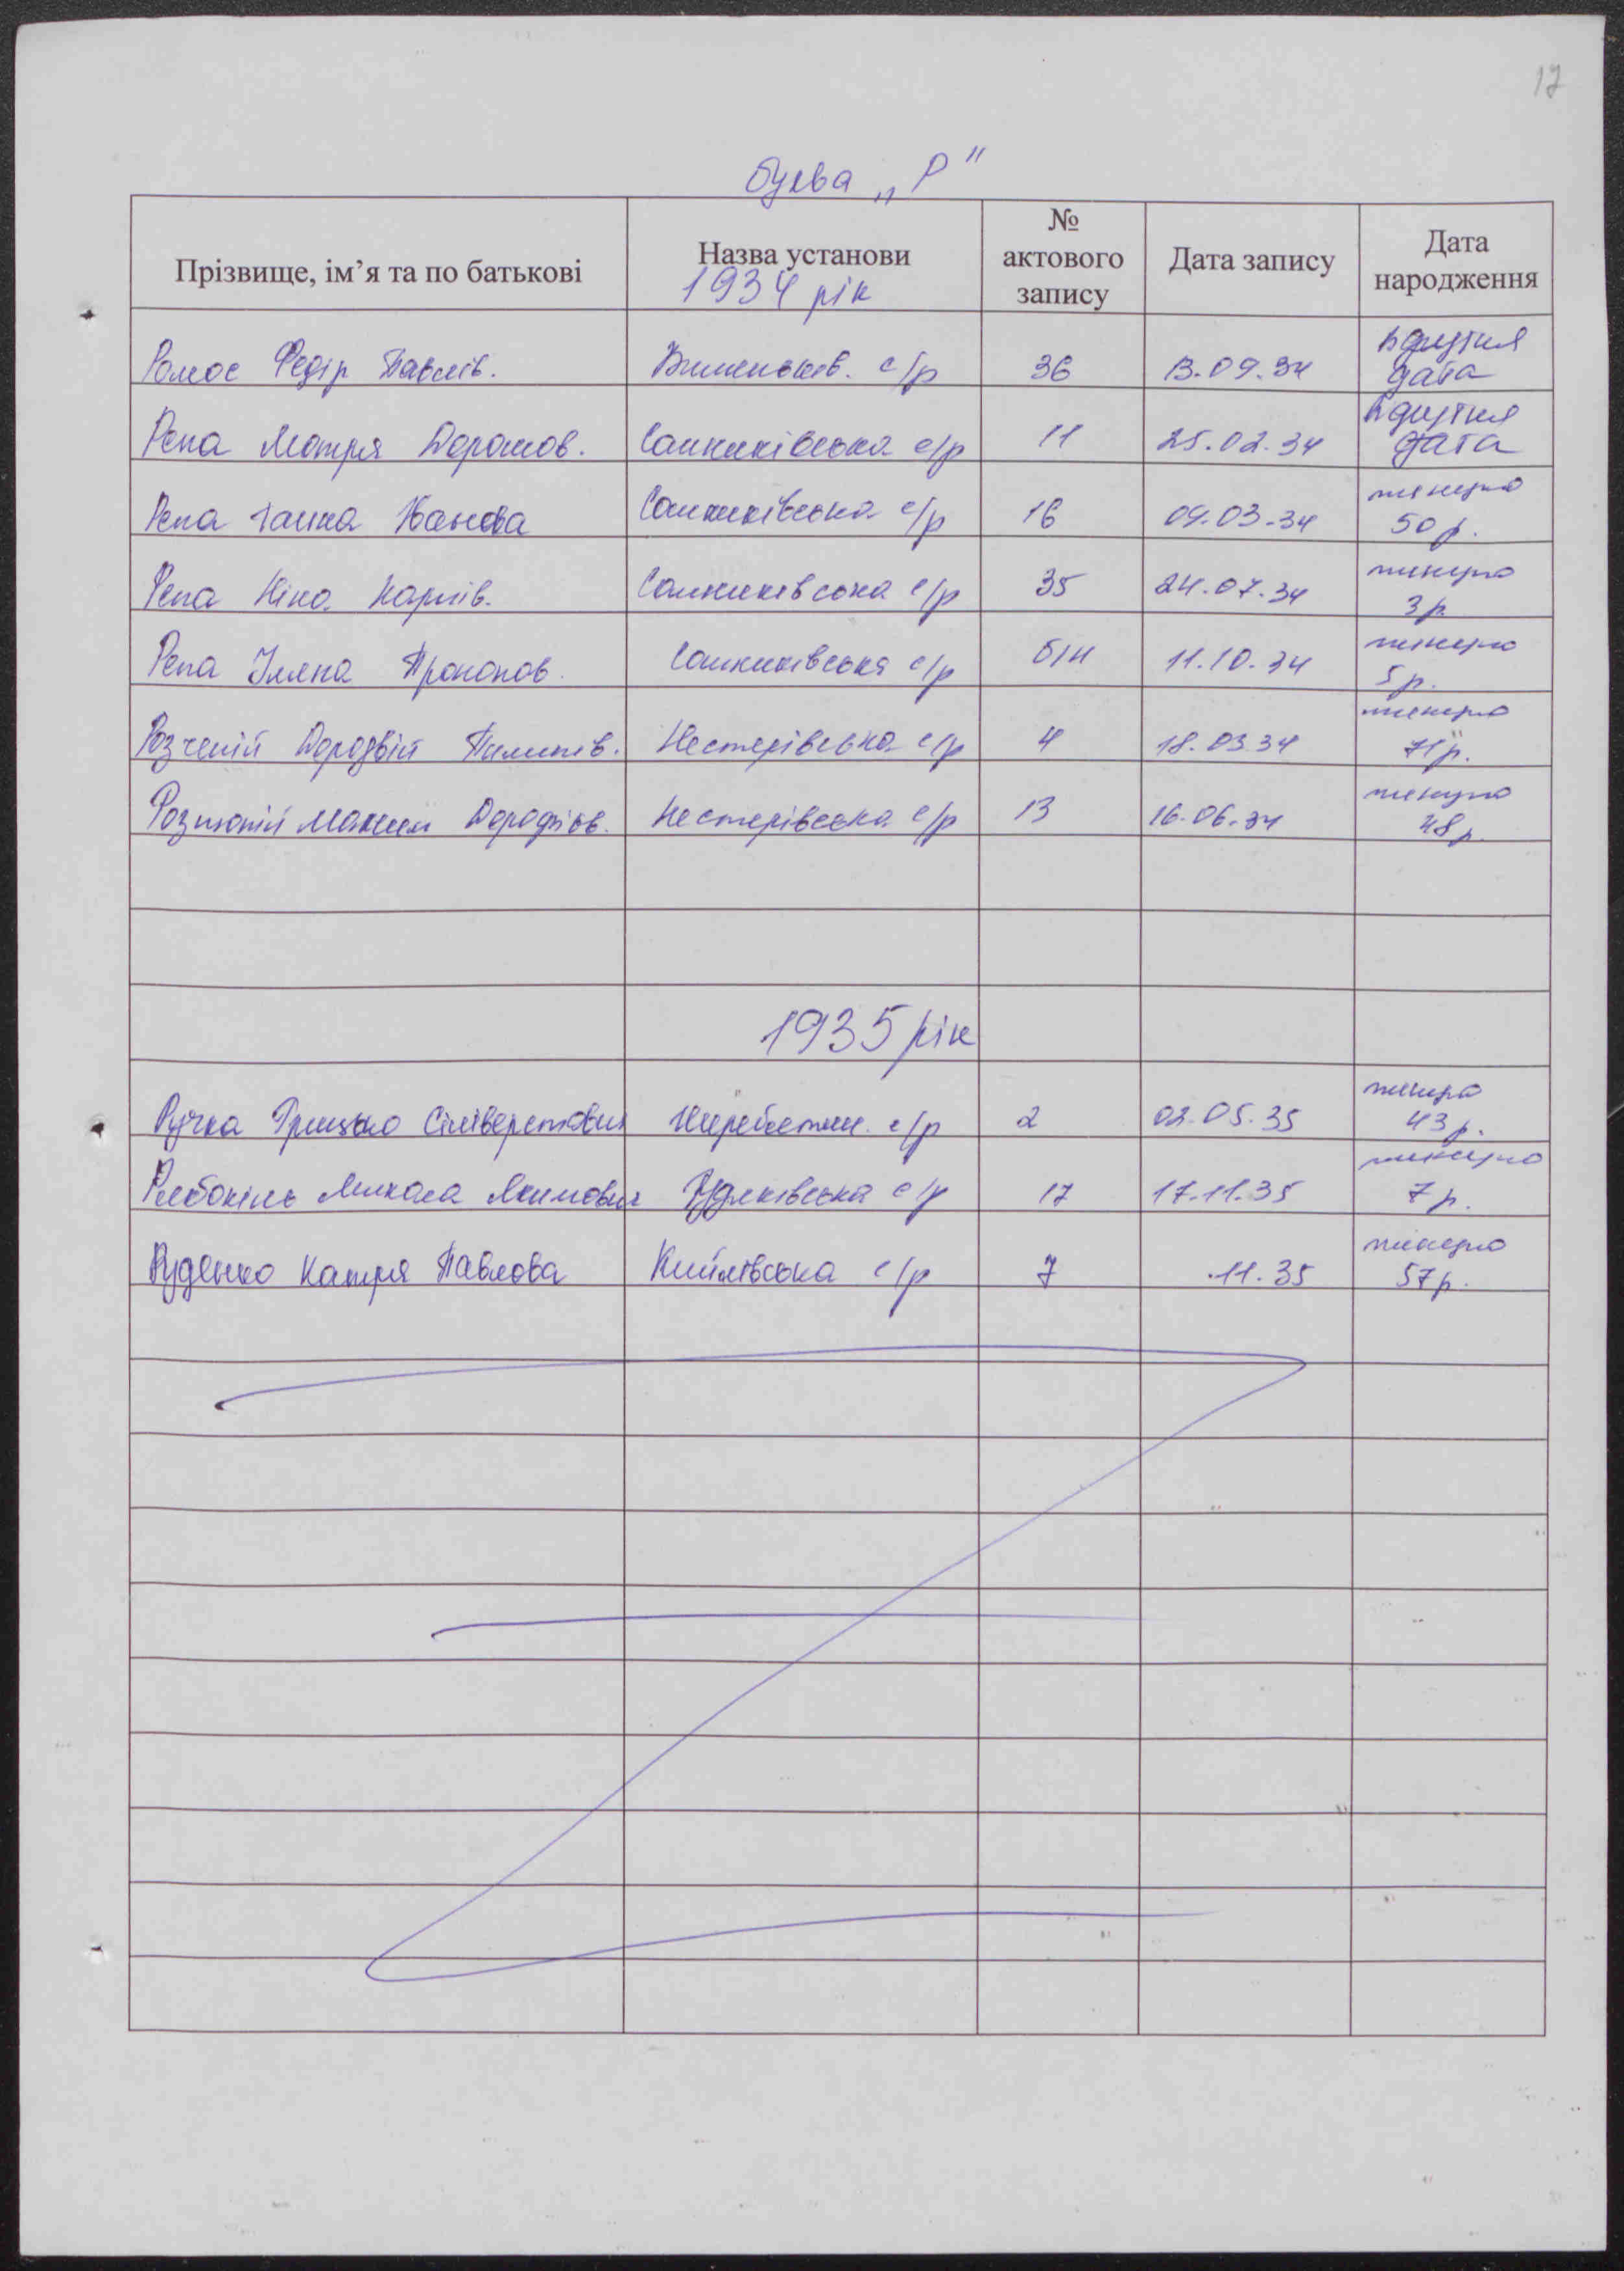 17
буква „Р"
Прізвище, ім’я та по батькові Назва установи 1934 рік № актового запису Дата запису Дата народження
Ромос Федір Павлів. с/р 36 13.09.34 відсутня дата
Репа Мотря Дорошов. Сошниківська с/р 11 25.02.34 відсутня дата
Репа Ганна Іванова Сошниківська с/р 16 09.03.34 минуло 50 р.
Репа Ніна Карпів. Сошниківська с/р 35 24.07.34 минуло 3 р.
Репа Уляна Прокопов. Сошниківська с/р б/н 11.10.34 минуло 5 р.
Дородвій Пилипів. Нестерівська с/р 4 18.03.34 минуло 71 р.
Максим Нестерівська с/р 13 16.06.34 минуло 48 р.
1935 рік
Ручка Грицько Сіліверстович с/р 2 02.05.35 минуло 43 р.
Микола Якимович Рудяківська с/р 17 17.11.35 минуло 7 р.
Руденко Катря Павлова Кийлівська с/р 7 .11.35 минуло 57 р.